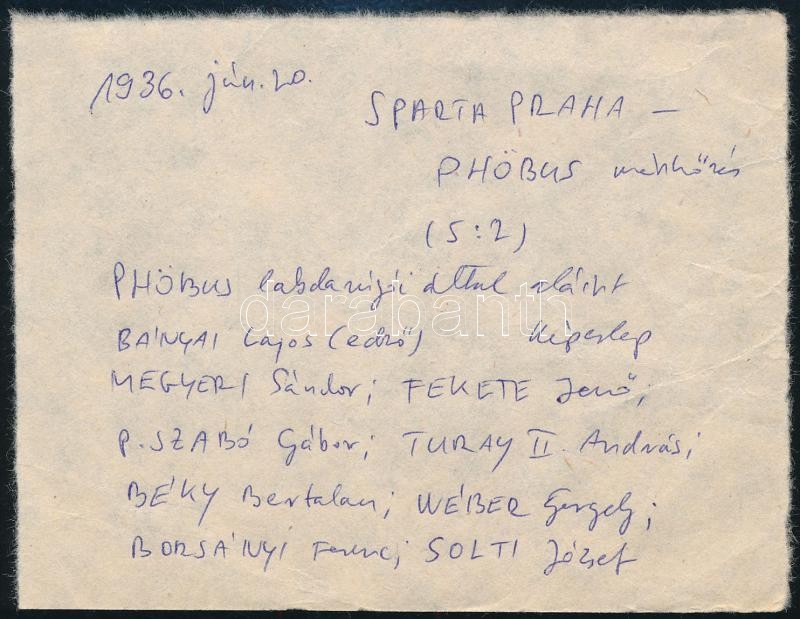 1936. jún. 20.
SPARTA PRAHA —
PHÖBUS mérkőzés
(5:2)
PHÖBUS labdarúgói által aláírt
BÁNYAI Lajos (edző) képeslap
MEGYERI Sándor; FEKETE Jenő;
P. SZABÓ Gábor; TURAY II. András;
BÉKY Bertalan; WÉBER Gergely;
BORSÁNYI Ferenc; SOLTI József
darabanth